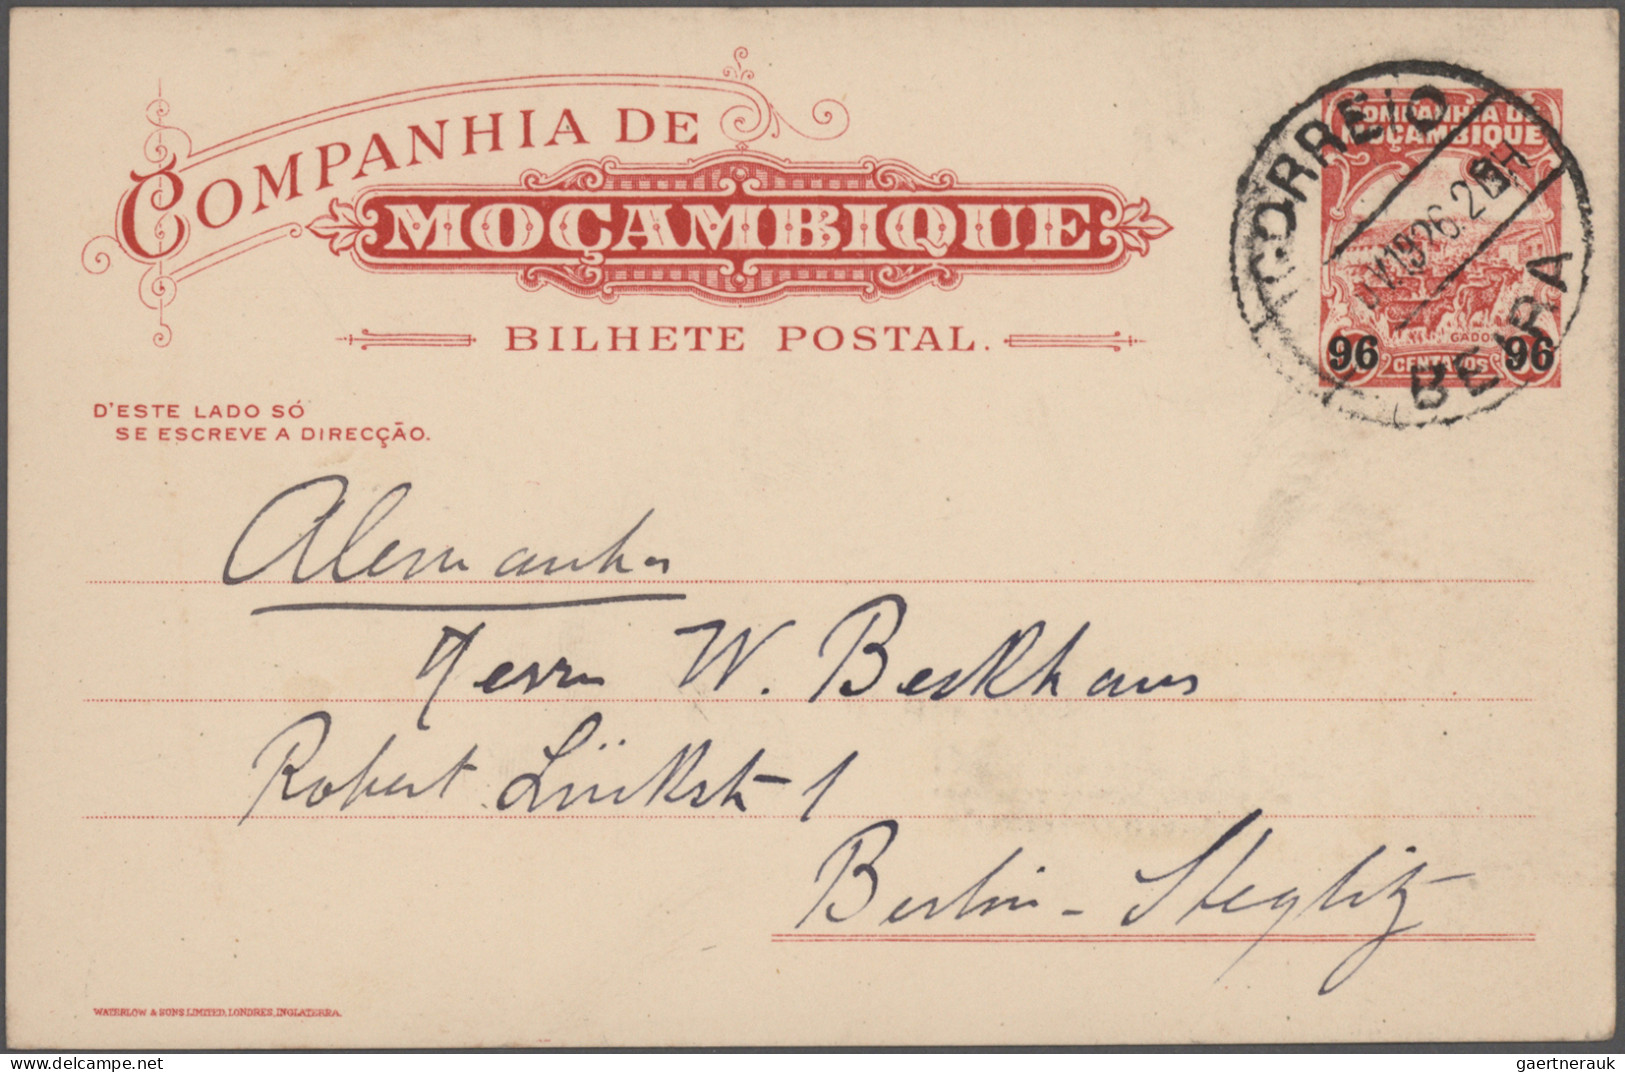 COMPANHIA DE
MOÇAMBIQUE
BILHETE POSTAL.
D'ESTE LADO SÓ
SE ESCREVE A DIRECÇÃO.
COMPANHIA DE
MOÇAMBIQUE
GADO
96 CENTAVOS 96
CORREIO
BEIRA
Alemanha
Herrn W. Beckhaus
Robert Lückstr 1
Berlin - Steglitz
WATERLOW & SONS LIMITED, LONDRES, INGLATERRA.
delcampe.net
gaertnerauk